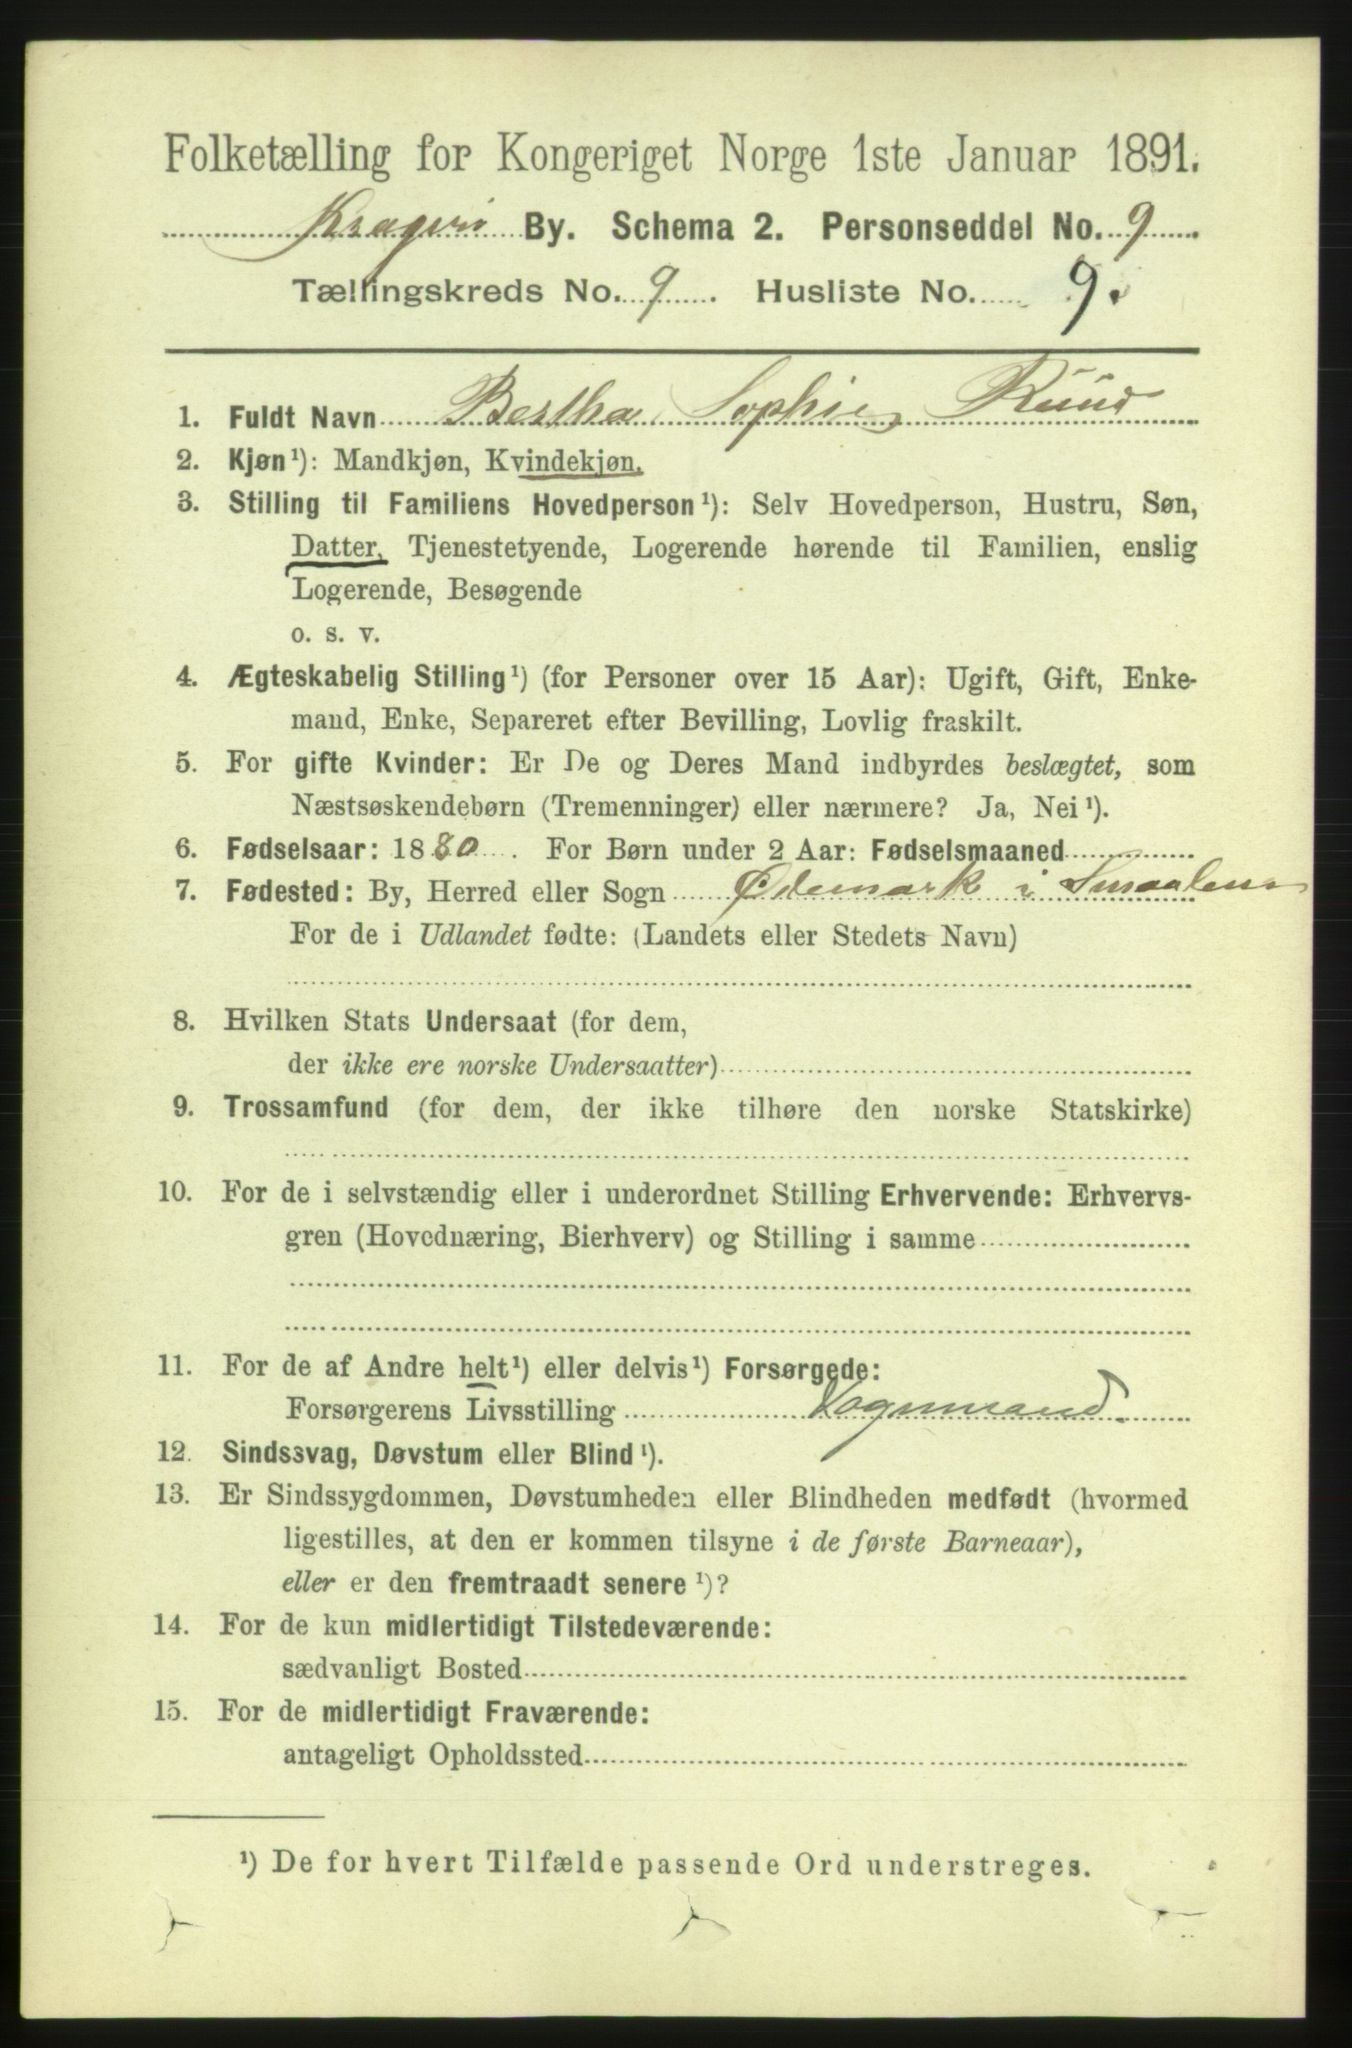 Folketælling for Kongeriget Norge 1ste Januar 1891.
Kragerø By. Schema 2. Personseddel No. 9
Tællingskreds No. 9. Husliste No. 9.
1. Fuldt Navn Bertha Sophie Ruud
2. Kjøn¹): Mandkjøn, Kvindekjøn.
3. Stilling til Familiens Hovedperson¹): Selv Hovedperson, Hustru, Søn,
Datter, Tjenestetyende, Logerende hørende til Familien, enslig
Logerende, Besøgende
o. s. v.
4. Ægteskabelig Stilling¹) (for Personer over 15 Aar): Ugift, Gift, Enke-
mand, Enke, Separeret efter Bevilling, Lovlig fraskilt.
5. For gifte Kvinder: Er De og Deres Mand indbyrdes beslægtet, som
Næstsøskendebørn (Tremenninger) eller nærmere? Ja, Nei¹).
6. Fødselsaar: 1880. For Børn under 2 Aar: Fødselsmaaned
7. Fødested: By, Herred eller Sogn Ødemark i Smaalene
For de i Udlandet fødte: (Landets eller Stedets Navn)
8. Hvilken Stats Undersaat (for dem,
der ikke ere norske Undersaatter)
9. Trossamfund (for dem, der ikke tilhøre den norske Statskirke)
10. For de i selvstændig eller i underordnet Stilling Erhvervende: Erhvervs-
gren (Hovednæring, Bierhverv) og Stilling i samme
11. For de af Andre helt¹) eller delvis¹) Forsørgede:
Forsørgerens Livsstilling Vognmand.
12. Sindssvag, Døvstum eller Blind¹).
13. Er Sindssygdommen, Døvstumheden eller Blindheden medfødt (hvormed
ligestilles, at den er kommen tilsyne i de første Barneaar),
eller er den fremtraadt senere¹)?
14. For de kun midlertidigt Tilstedeværende:
sædvanligt Bosted
15. For de midlertidigt Fraværende:
antageligt Opholdssted
¹) De for hvert Tilfælde passende Ord understreges.